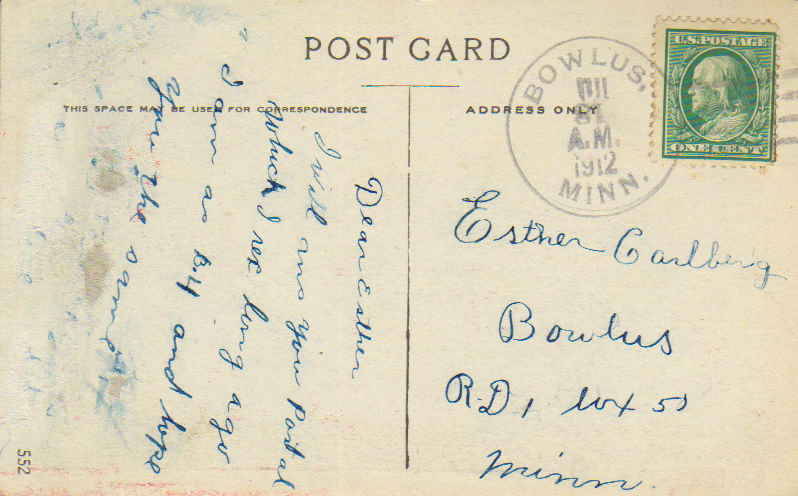 POST CARD
THIS SPACE MAY BE USED FOR CORRESPONDENCE
ADDRESS ONLY
BOWLUS,
A.M.
1912
MINN.
U.S. POSTAGE
ONE CENT
Dear Esther
I will ans your Postal
which I rec long ago
I am as B.4 and hope
you the same
Esther Carlberg
Bowlus
R.D. 1 Box
Minn.
552